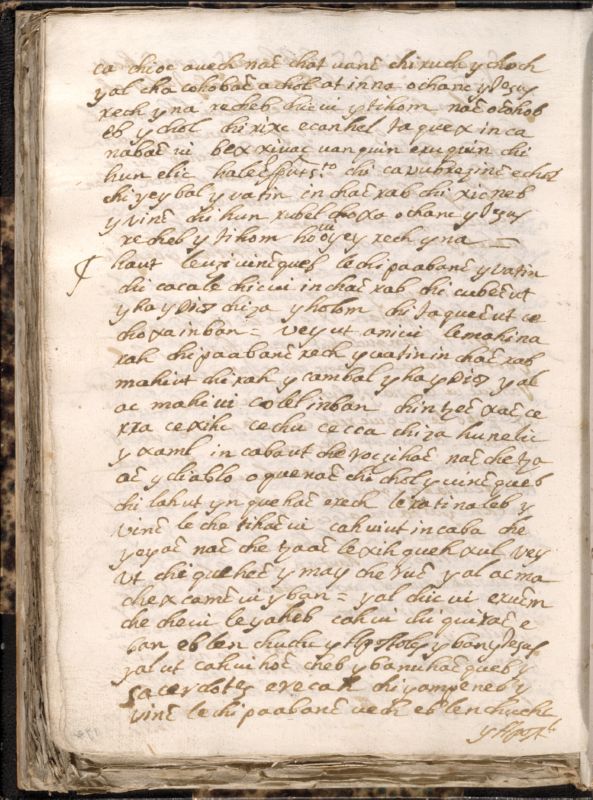 ca chioc avech nac chat vanc chi ruch y choch
y al cha cohobac achol at inna ochanc y Jesus
rech y na recheb chic ui y tihom nac ocohob
eb y chol chi rixc ecanhel taquex in ca
nabac ui bex xivac van quin exuquin chi
hun elic chi cavubrezinc echol
chi yeybal y vatin inchac rab chi xicneb
y vinc chi hun rubel choxa ochanc y Jesus
recheb y tihom hooyey rech y na
haut leuzivincqueb lechi paabanc y vatin
chi cacale chic ui inchac rab chi cubecut
y ha y Dios chiza y holom chi taquecut ce
choxa inban = Vey ut aniui lemahina
rah chi paabanc rech y vatin inchac rab
mahiut chi rah y cambal y ha y Dios y al
ac mahi ui colel inban chin tzec xac ce
rra cexihc cechu cecca chiza hunelic
y xaml in cabaut che yocyihac nac che tza
ac y diablo oquenac chi chol y vincqueb
chi lahut yn quehac erech le ratinaleb y
vinc le che tihac ui cahuiut in caba che
yeyac nac che tzaac lexih queh xul vey
Vt chi quehec y may che yuc y al ac ma
che x camc ui y ban = y al chic ui exucm
che cheui le yaheb cahui chi quirac e
ban eb len chuchu y Apostoles y ban y Jesus
y al ut cahui hoc cheb y banuhac queb y
sacerdotes erecah chi yampeneb y
vinc le chi paabanc vech eb len chuchu
y Apost.